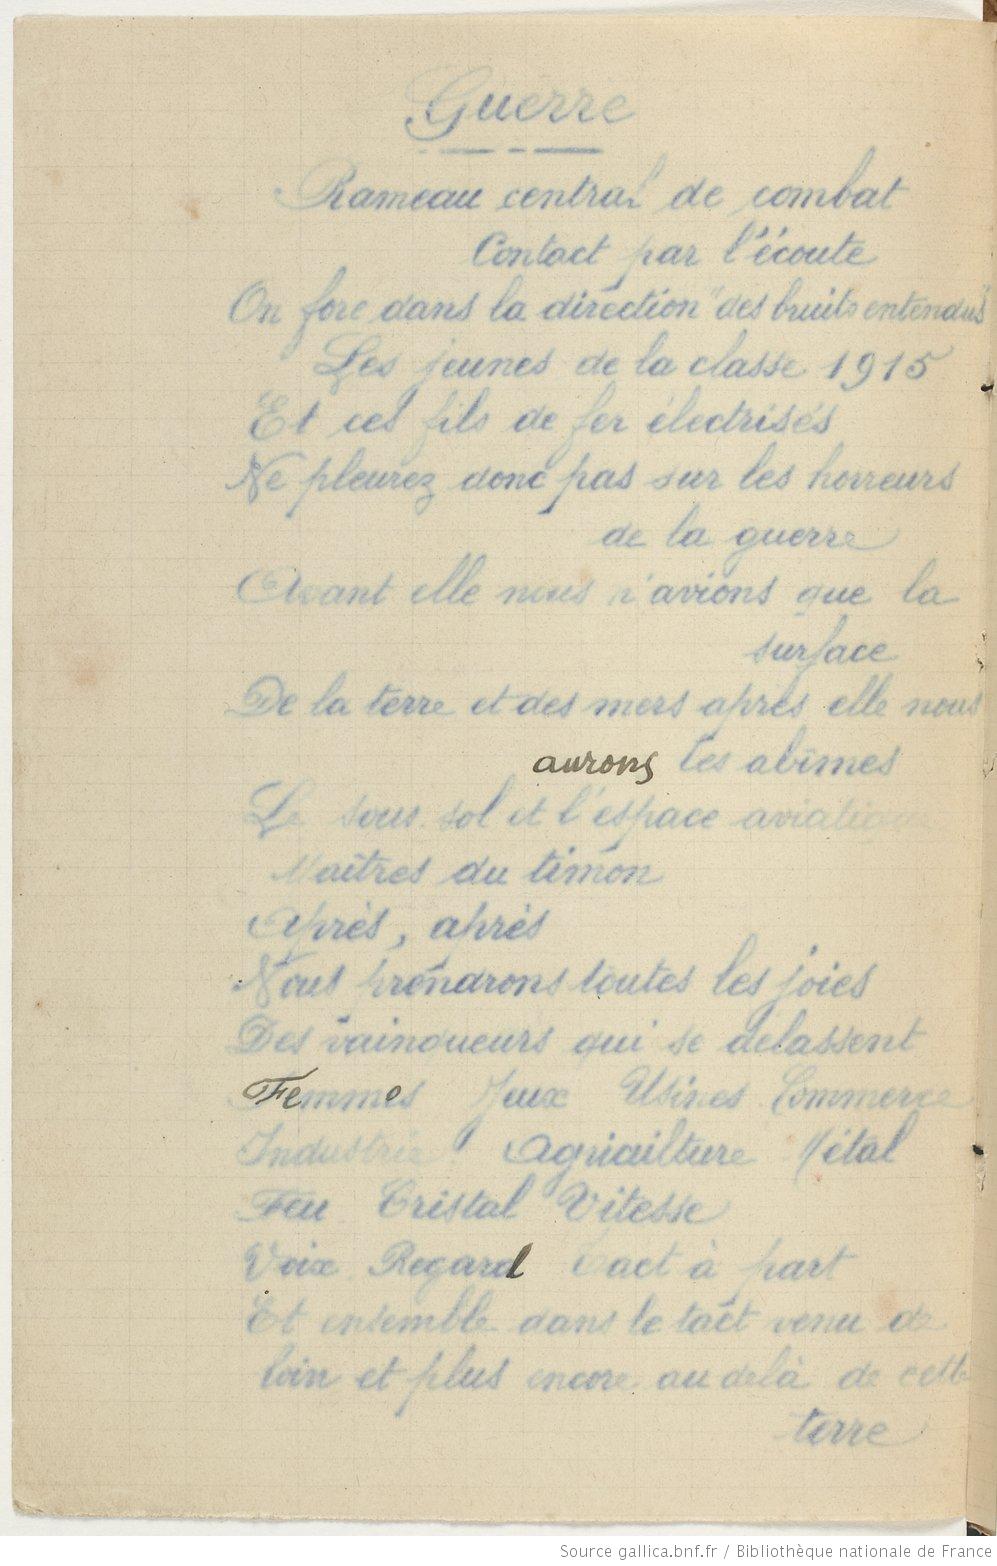 Guerre
Rameau central de combat
Contact par l'écoute
On fore dans la direction "des bruits entendus"
Les jeunes de la classe 1915
Et ces fils de fer électrisés
Ne pleurez donc pas sur les horreurs
de la guerre
Avant elle nous n'avions que la
surface
De la terre et des mers après elle nous
aurons les abîmes
Le sous-sol et l'espace aviatique
Maîtres du timon
Après, après
Nous prendrons toutes les joies
Des vainqueurs qui se delassent
Femmes Jeux Usines Commerce
Industrie Agriculture Métal
Feu Cristal Vitesse
Voix Regard Tact à part
Et ensemble dans le tact venu de
loin et plus encore au delà de cette
terre
Source gallica.bnf.fr / Bibliothèque nationale de France